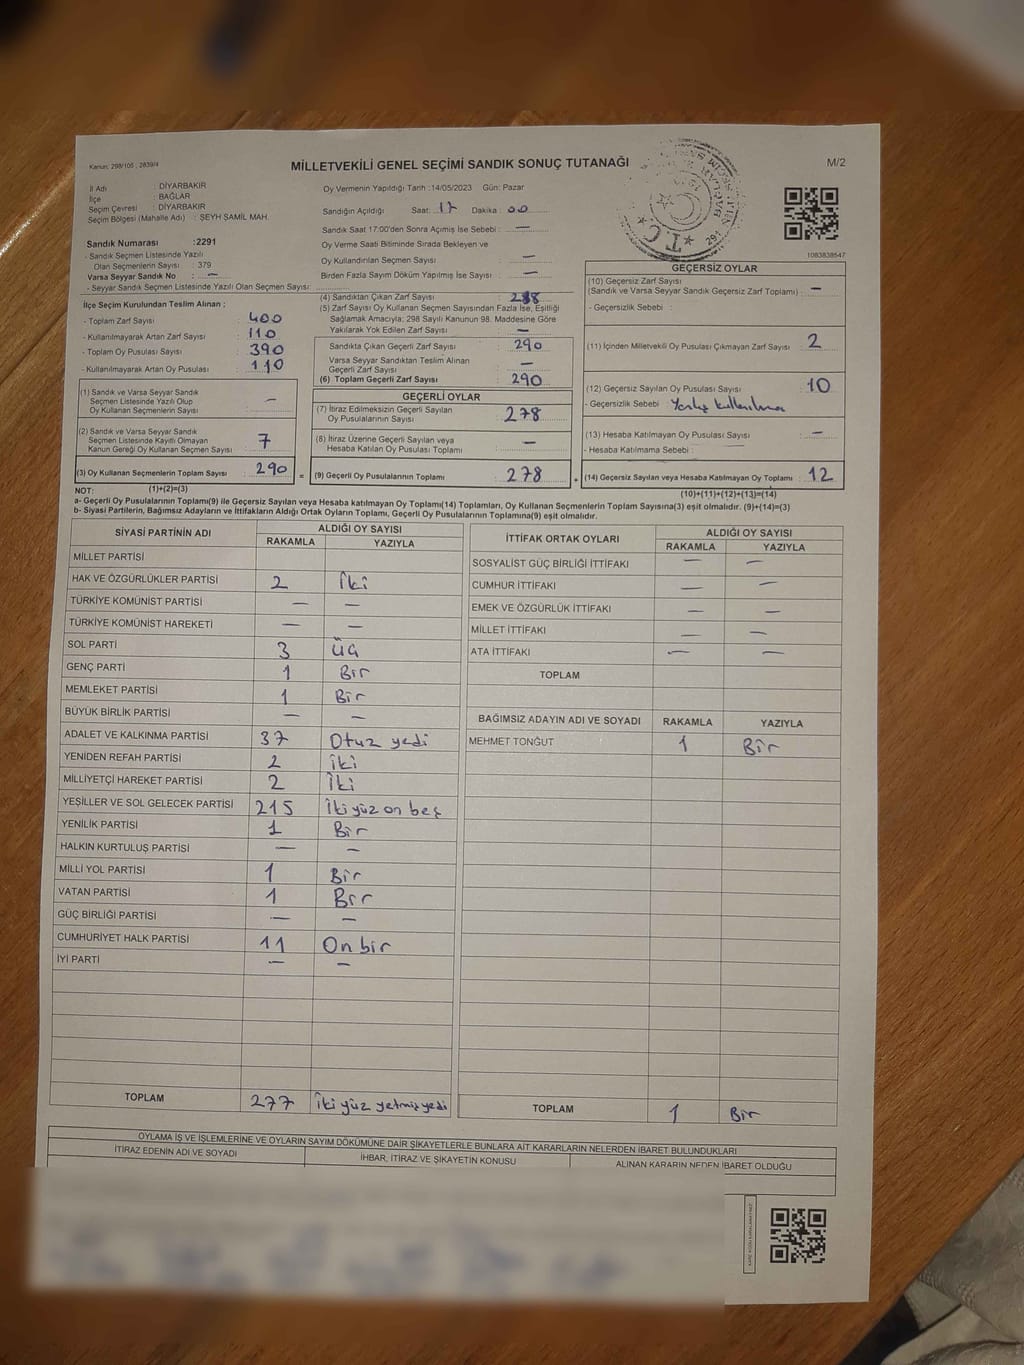 Kanun: 298/105 , 2839/4
MİLLETVEKİLİ GENEL SEÇİMİ SANDIK SONUÇ TUTANAĞI
M/2
İl Adı : DİYARBAKIR
İlçe : BAĞLAR
Seçim Çevresi : DİYARBAKIR
Seçim Bölgesi (Mahalle Adı) : ŞEYH ŞAMİL MAH.
Oy Vermenin Yapıldığı Tarih :14/05/2023 Gün: Pazar
Sandığın Açıldığı Saat: 17 Dakika : 00
Sandık Saat 17:00'den Sonra Açımış İse Sebebi : —
Oy Verme Saati Bitiminde Sırada Bekleyen ve
Oy Kullandırılan Seçmen Sayısı : —
Birden Fazla Sayım Döküm Yapılmış İse Sayısı : —
T.C.
1083838547
Sandık Numarası :2291
- Sandık Seçmen Listesinde Yazılı
Olan Seçmenlerin Sayısı : 379
Varsa Seyyar Sandık No : —
- Seyyar Sandık Seçmen Listesinde Yazılı Olan Seçmen Sayısı :
İlçe Seçim Kurulundan Teslim Alınan ;
- Toplam Zarf Sayısı : 400
- Kullanılmayarak Artan Zarf Sayısı : 110
- Toplam Oy Pusulası Sayısı : 390
- Kullanılmayarak Artan Oy Pusulası : 110
(1) Sandık ve Varsa Seyyar Sandık
Seçmen Listesinde Yazılı Olup
Oy Kullanan Seçmenlerin Sayısı : —
(2) Sandık ve Varsa Seyyar Sandık
Seçmen Listesinde Kayıtlı Olmayan
Kanun Gereği Oy Kullanan Seçmen Sayısı : 7
(3) Oy Kullanan Seçmenlerin Toplam Sayısı : 290
(1)+(2)=(3)
(4) Sandıktan Çıkan Zarf Sayısı : 288
(5) Zarf Sayısı Oy Kullanan Seçmen Sayısından Fazla İse, Eşitliği
Sağlamak Amacıyla; 298 Sayılı Kanunun 98. Maddesine Göre
Yakılarak Yok Edilen Zarf Sayısı : —
Sandıkta Çıkan Geçerli Zarf Sayısı : 290
Varsa Seyyar Sandıktan Teslim Alınan
Geçerli Zarf Sayısı : —
(6) Toplam Geçerli Zarf Sayısı : 290
GEÇERLİ OYLAR
(7) İtiraz Edilmeksizin Geçerli Sayılan
Oy Pusulalarının Sayısı : 278
(8) İtiraz Üzerine Geçerli Sayılan veya
Hesaba Katılan Oy Pusulası Toplamı : —
= (9) Geçerli Oy Pusulalarının Toplamı : 278
GEÇERSİZ OYLAR
(10) Geçersiz Zarf Sayısı
(Sandık ve Varsa Seyyar Sandık Geçersiz Zarf Toplamı) : —
- Geçersizlik Sebebi :
(11) İçinden Milletvekili Oy Pusulası Çıkmayan Zarf Sayısı : 2
(12) Geçersiz Sayılan Oy Pusulası Sayısı : 10
- Geçersizlik Sebebi : Yanlış kullanılma
(13) Hesaba Katılmayan Oy Pusulası Sayısı : —
- Hesaba Katılmama Sebebi :
+ (14) Geçersiz Sayılan veya Hesaba Katılmayan Oy Toplamı : 12
(10)+(11)+(12)+(13)=(14)
NOT:
a- Geçerli Oy Pusulalarının Toplamı(9) ile Geçersiz Sayılan veya Hesaba katılmayan Oy Toplamı(14) Toplamları, Oy Kullanan Seçmenlerin Toplam Sayısına(3) eşit olmalıdır. (9)+(14)=(3)
b- Siyasi Partilerin, Bağımsız Adayların ve İttifakların Aldığı Ortak Oyların Toplamı, Geçerli Oy Pusulalarının Toplamına(9) eşit olmalıdır.
SİYASİ PARTİNİN ADI ALDIĞI OY SAYISI
RAKAMLA YAZIYLA
MİLLET PARTİSİ
HAK VE ÖZGÜRLÜKLER PARTİSİ 2 İki
TÜRKİYE KOMÜNİST PARTİSİ — —
TÜRKİYE KOMÜNİST HAREKETİ — —
SOL PARTİ 3 Üç
GENÇ PARTİ 1 Bir
MEMLEKET PARTİSİ 1 Bir
BÜYÜK BİRLİK PARTİSİ — —
ADALET VE KALKINMA PARTİSİ 37 Otuz yedi
YENİDEN REFAH PARTİSİ 2 İki
MİLLİYETÇİ HAREKET PARTİSİ 2 İki
YEŞİLLER VE SOL GELECEK PARTİSİ 215 İki yüz on beş
YENİLİK PARTİSİ 1 Bir
HALKIN KURTULUŞ PARTİSİ — —
MİLLİ YOL PARTİSİ 1 Bir
VATAN PARTİSİ 1 Bir
GÜÇ BİRLİĞİ PARTİSİ — —
CUMHURİYET HALK PARTİSİ 11 On bir
İYİ PARTİ — —
TOPLAM 277 İki yüz yetmiş yedi
İTTİFAK ORTAK OYLARI ALDIĞI OY SAYISI
RAKAMLA YAZIYLA
SOSYALİST GÜÇ BİRLİĞİ İTTİFAKI — —
CUMHUR İTTİFAKI — —
EMEK VE ÖZGÜRLÜK İTTİFAKI — —
MİLLET İTTİFAKI — —
ATA İTTİFAKI — —
TOPLAM
BAĞIMSIZ ADAYIN ADI VE SOYADI RAKAMLA YAZIYLA
MEHMET TONĞUT 1 Bir
TOPLAM 1 Bir
OYLAMA İŞ VE İŞLEMLERİNE VE OYLARIN SAYIM DÖKÜMÜNE DAİR ŞİKAYETLERLE BUNLARA AİT KARARLARIN NELERDEN İBARET BULUNDUKLARI
İTİRAZ EDENİN ADI VE SOYADI İHBAR, İTİRAZ VE ŞİKAYETİN KONUSU ALINAN KARARIN NEDEN İBARET OLDUĞU